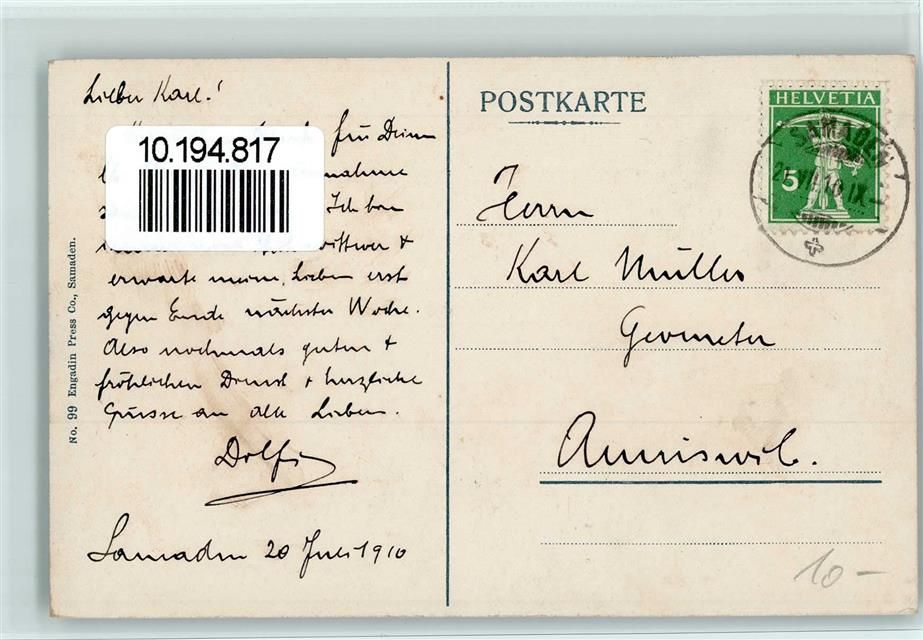 Lieber Karl!
für Deine
10.194.817
Ich bin
erwarte meine Lieben erst
gegen Ende nächster Woche.
Also nochmals guten &
fröhlichen Dienst & herzliche
Grüsse an alle Lieben.
Dolfi
Samaden 20 Juli 1910
No. 99 Engadin Press Co., Samaden.
POSTKARTE
HELVETIA
5
SAMADEN
Herrn
Karl Müller
Geometer
Amriswil.
10 —